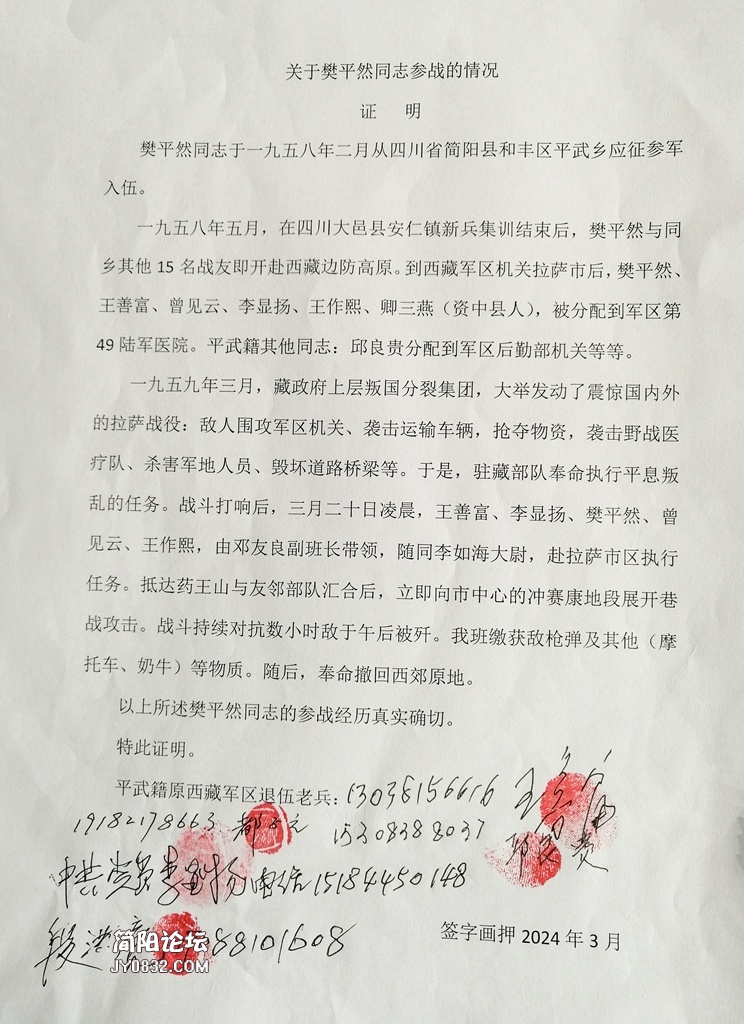 关于樊平然同志参战的情况
证 明
樊平然同志于一九五八年二月从四川省简阳县和丰区平武乡应征参军
入伍。
一九五八年五月，在四川大邑县安仁镇新兵集训结束后，樊平然与同
乡其他 15 名战友即开赴西藏边防高原。到西藏军区机关拉萨市后，樊平然、
王善富、曾见云、李显扬、王作熙、卿三燕（资中县人），被分配到军区第
49 陆军医院。平武籍其他同志：邱良贵分配到军区后勤部机关等等。
一九五九年三月，藏政府上层叛国分裂集团，大举发动了震惊国内外
的拉萨战役：敌人围攻军区机关、袭击运输车辆，抢夺物资，袭击野战医
疗队、杀害军地人员、毁坏道路桥梁等。于是，驻藏部队奉命执行平息叛
乱的任务。战斗打响后，三月二十日凌晨，王善富、李显扬、樊平然、曾
见云、王作熙，由邓友良副班长带领，随同李如海大尉，赴拉萨市区执行
任务。抵达药王山与友邻部队汇合后，立即向市中心的冲赛康地段展开巷
战攻击。战斗持续对抗数小时敌于午后被歼。我班缴获敌枪弹及其他（摩
托车、奶牛）等物质。随后，奉命撤回西郊原地。
以上所述樊平然同志的参战经历真实确切。
特此证明。
平武籍原西藏军区退伍老兵：13038156616 王善富
19182178663 15308388037 邱良贵
中共党员李显扬电话15184450148
段 88101608
签字画押 2024 年 3 月
简阳论坛
JY0832.com